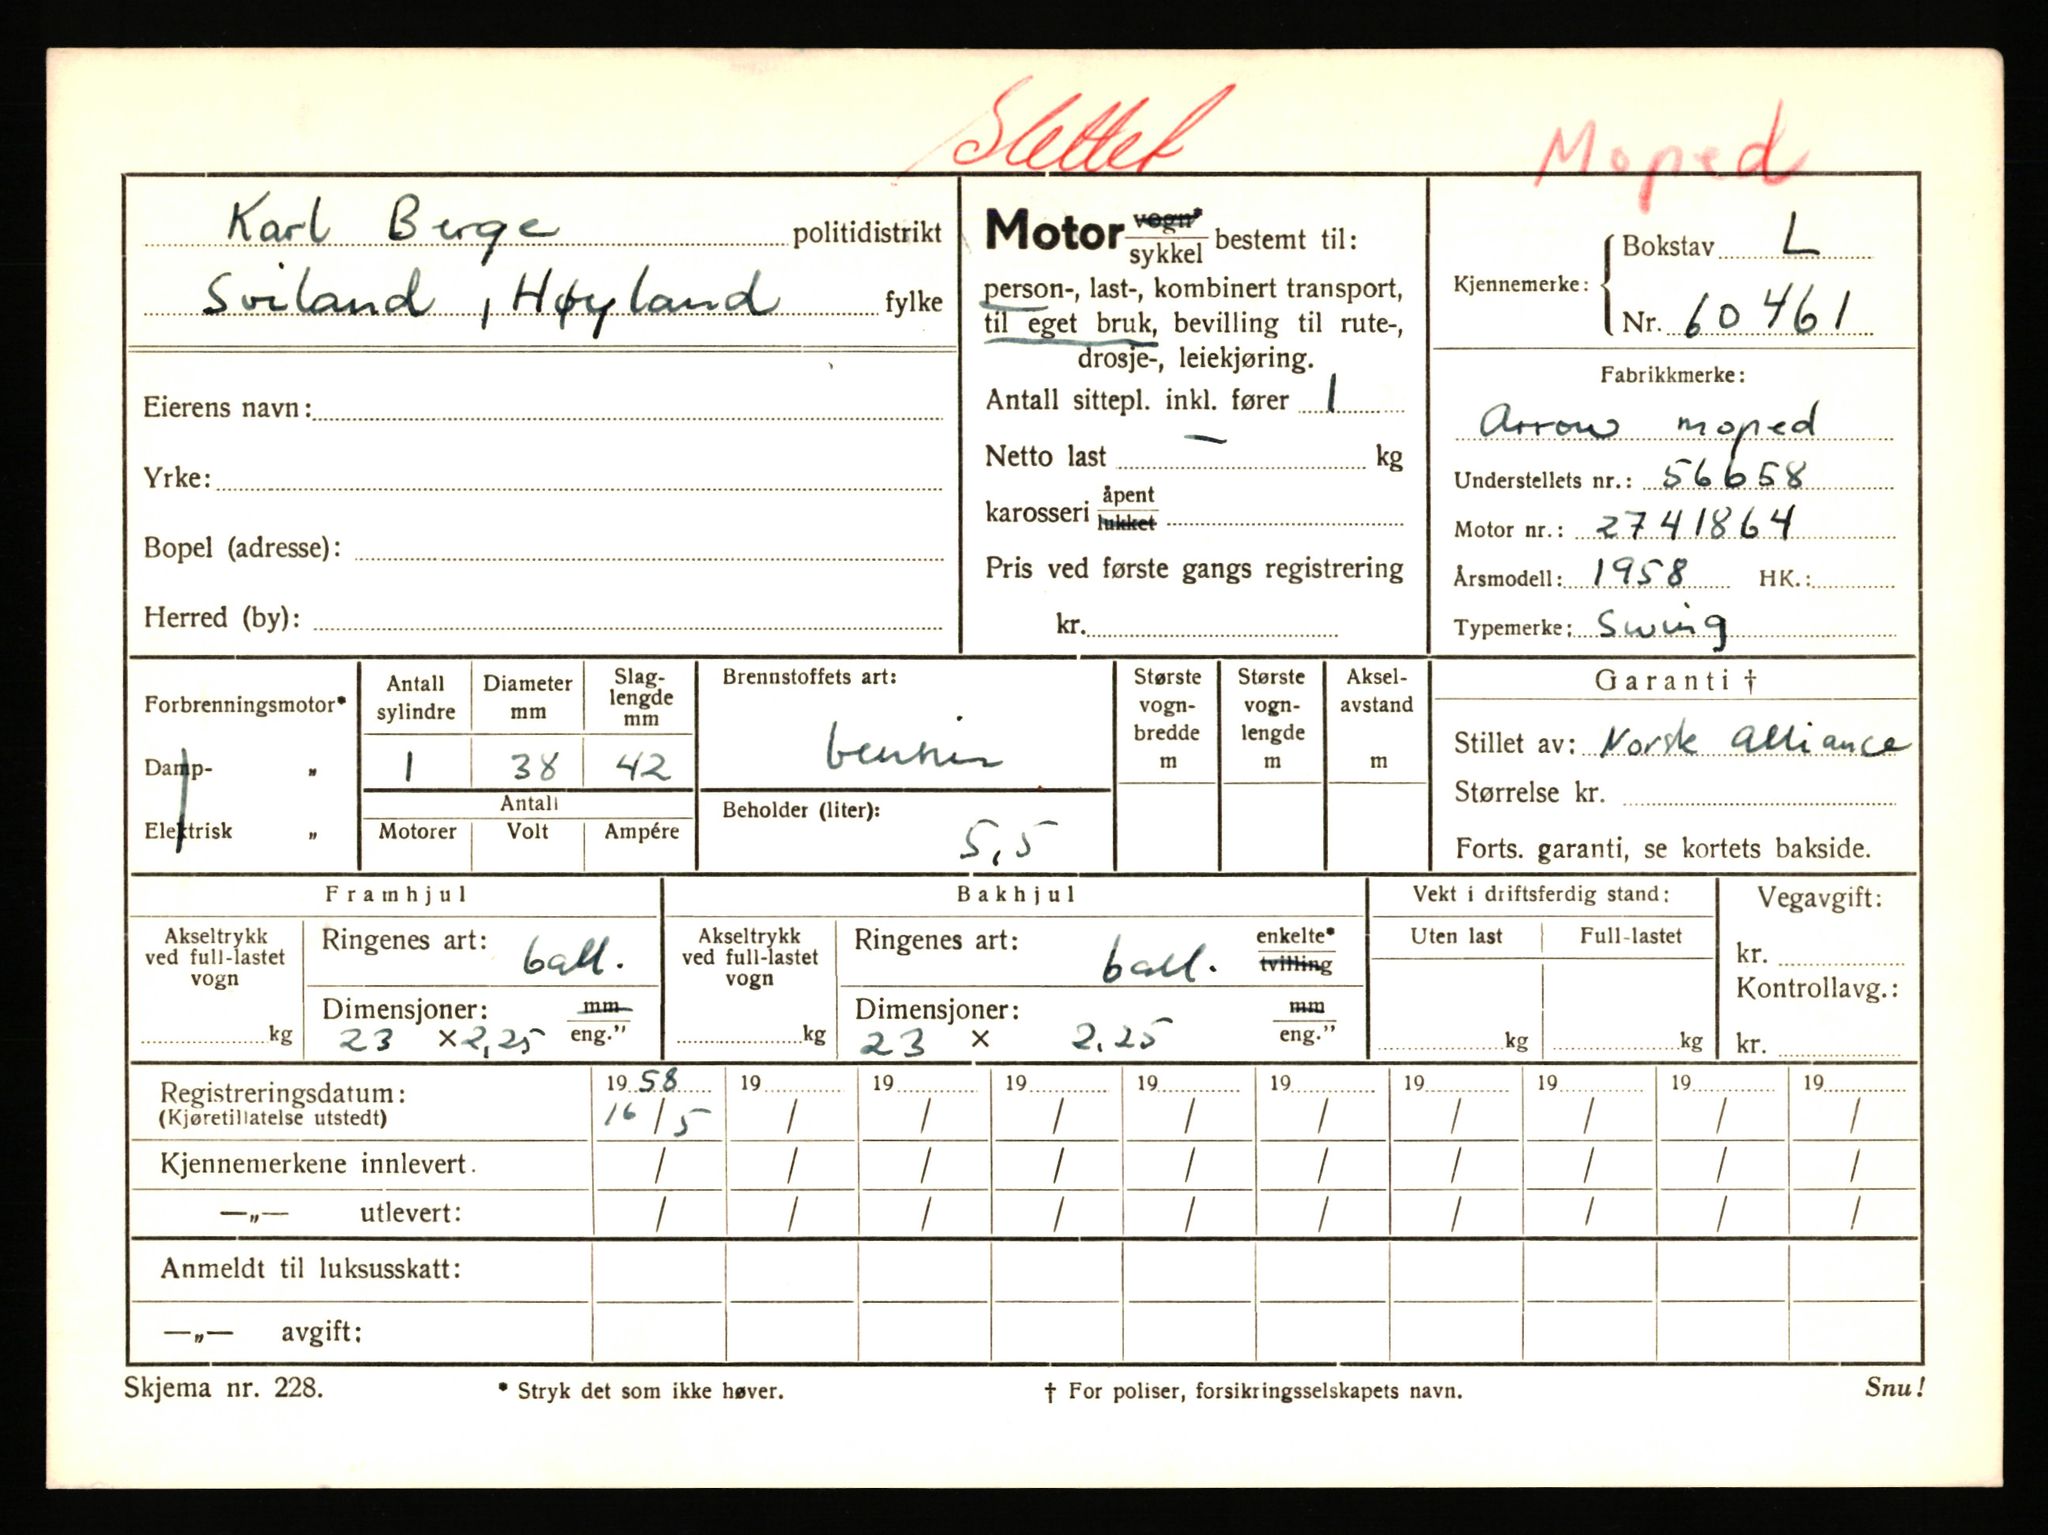 Slettet
Moped
Karl Berge politidistrikt
Sviland, Høyland fylke
Eierens navn:
Yrke:
Bopel (adresse):
Herred (by):
Motor vogn* sykkel bestemt til:
person-, last-, kombinert transport,
til eget bruk, bevilling til rute-,
drosje-, leiekjøring.
Antall sittepl. inkl. fører 1
Netto last — kg
karosseri åpent lukket
Pris ved første gangs registrering
kr.
Kjennemerke: Bokstav L
Nr. 60461
Fabrikkmerke:
Arrow moped
Understellets nr.: 56658
Motor nr.: 2741864
Årsmodell: 1958 HK.:
Typemerke: Swing
Forbrenningsmotor*
Damp- „
Elektrisk „
Antall sylindre
1
Diameter mm
38
Slag-lengde mm
42
Antall
Motorer Volt Ampére
Brennstoffets art:
bensin
Beholder (liter):
5,5
Største vogn-bredde m
Største vogn-lengde m
Aksel-avstand m
Garanti †
Stillet av: Norsk Alliance
Størrelse kr.
Forts. garanti, se kortets bakside.
Framhjul
Akseltrykk ved full-lastet vogn
kg
Ringenes art: ball.
Dimensjoner: mm
23 x 2,25 eng.”
Bakhjul
Akseltrykk ved full-lastet vogn
kg
Ringenes art: ball. enkelte* tvilling
Dimensjoner: mm
23 x 2.25 eng.”
Vekt i driftsferdig stand:
Uten last Full-lastet
kg kg
Vegavgift:
kr.
Kontrollavg.:
kr.
Registreringsdatum: 1958 19 19 19 19 19 19 19 19 19
(Kjøretillatelse utstedt) 16/5 / / / / / / / / /
Kjennemerkene innlevert. / / / / / / / / / /
—„— utlevert: / / / / / / / / / /
Anmeldt til luksusskatt:
—„— avgift:
Skjema nr. 228. * Stryk det som ikke høver. † For poliser, forsikringsselskapets navn. Snu!